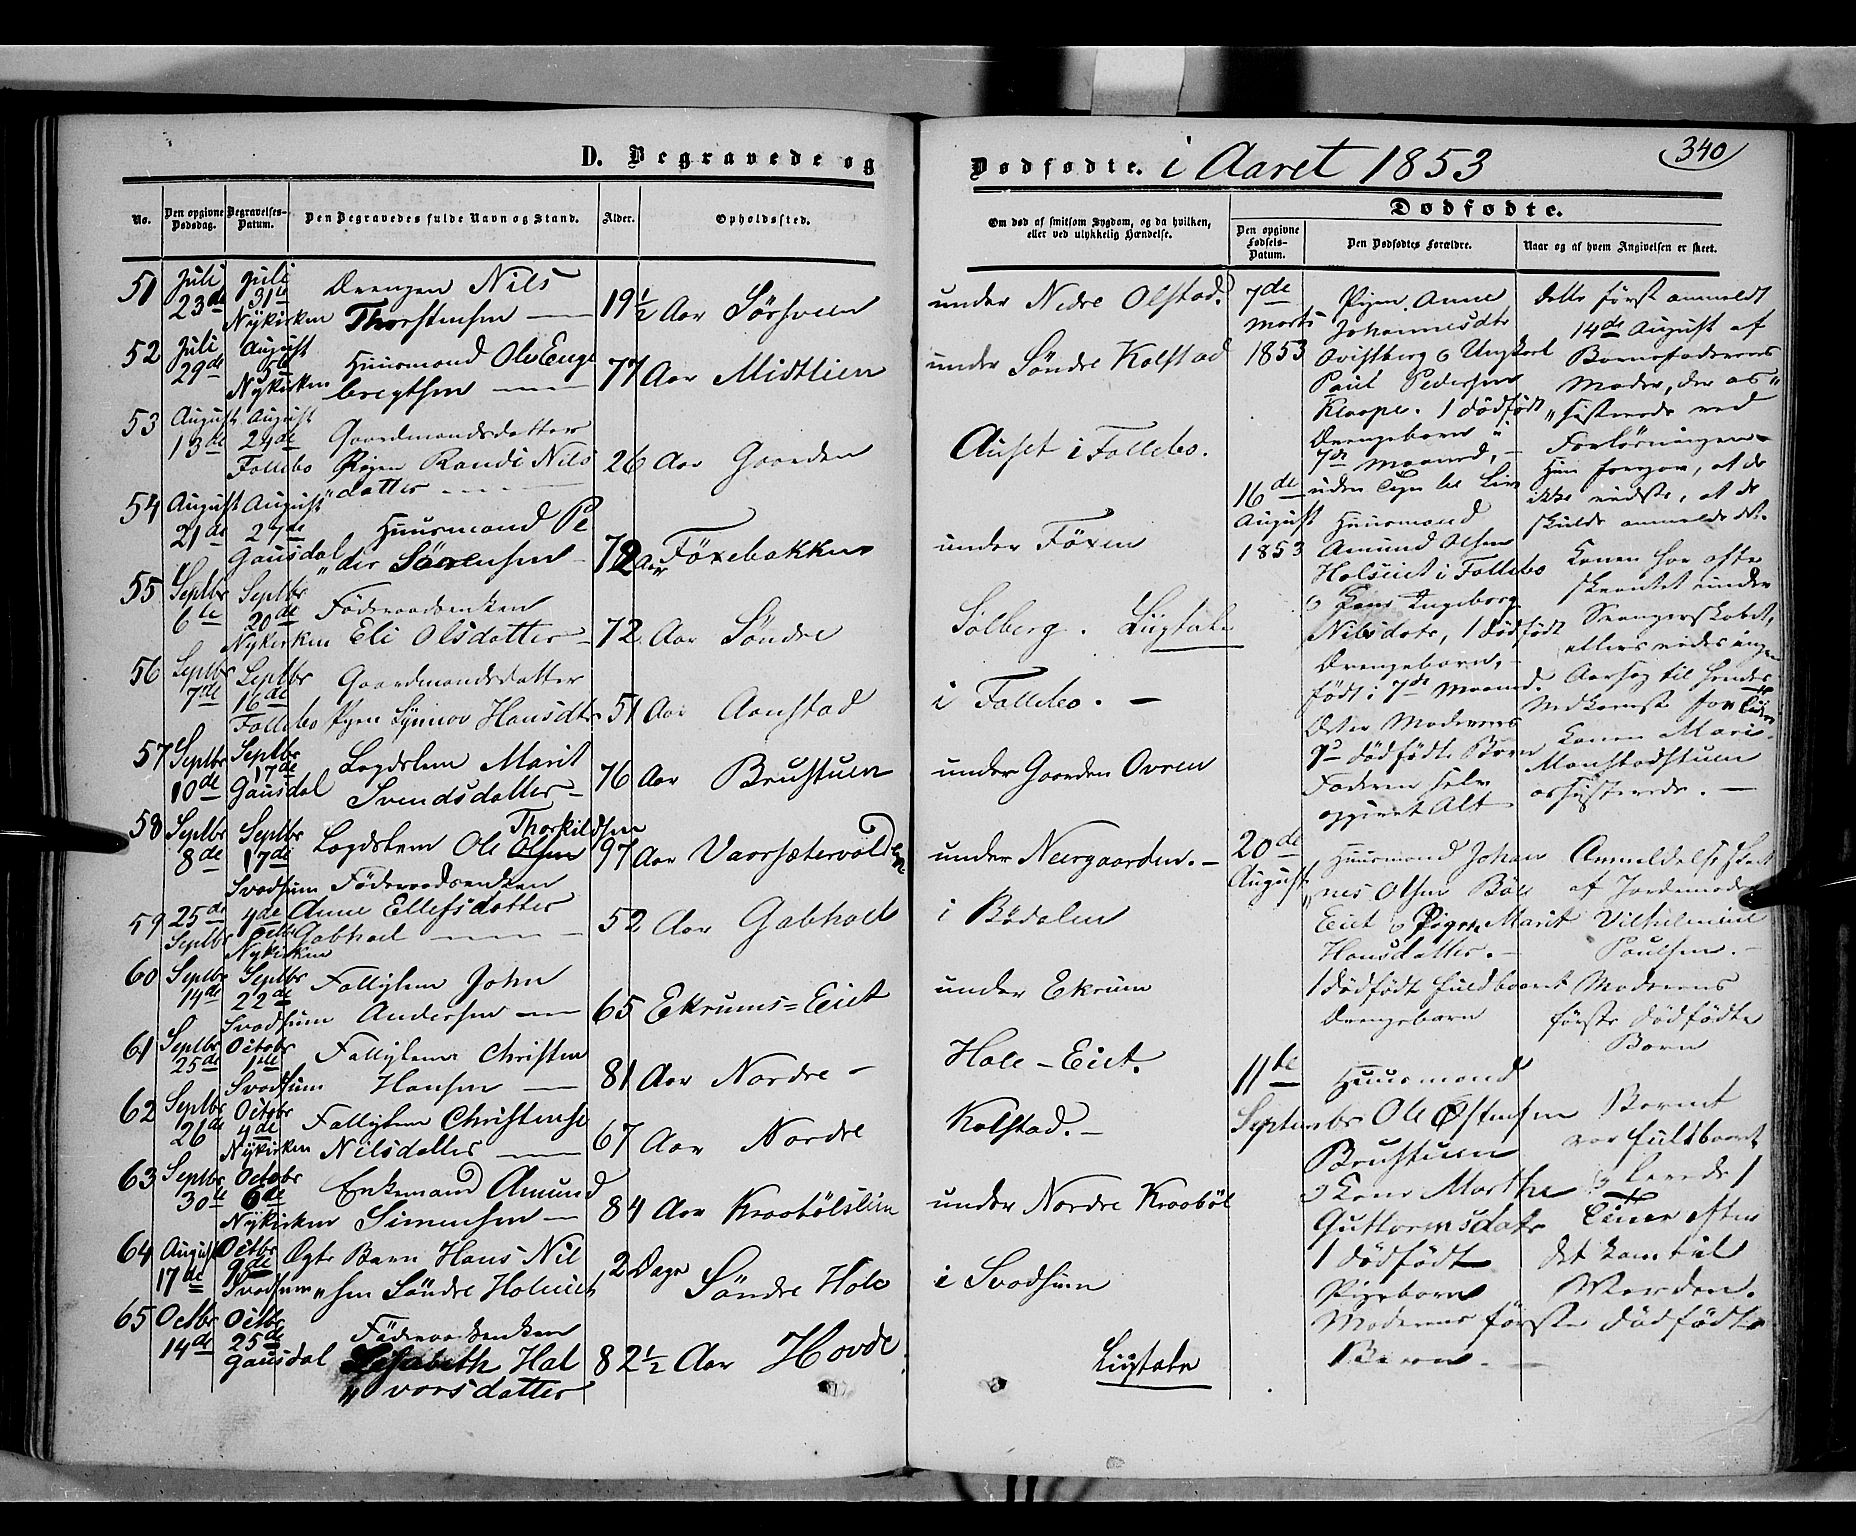 D. Begravede og
Dødfødte. i Aaret 1853
340
No.
Den opgivne Dødsdag.
Begravelses-Datum.
Den Begravedes fulde Navn og Stand.
Alder.
Opholdssted.
Om død af smitsom Sygdom, og da hvilken, eller ved ulykkelig Hændelse.
Dødfødte.
Den opgivne Fødsels-Datum.
Den Dødfødtes Forældre.
Naar og af hvem Angivelsen er skeet.
51 Juli 23de Juli 31te Nykirken Drengen Nils Thorstensen 19½ Aar Sørsveen under Nedre Olstad.
52 Juli 29de August Nykirken Huusmand Ole Engebregtsen 77 Aar Midtlien under Søndre Kolstad
53 August 13de August 24de Follebo Gaardmandsdatter Pigen Randi Nilsdatter 26 Aar Gaarden Auset i Follebo.
54 August 21de August 27de Gausdal Huusmand Peder Sørensen 72 Aar Föxebakken under Föxen
55 Septbr 6te Septbr 20de Nykirken Föderaadsenken Eli Olsdatter 72 Aar Søndre Solberg. Liigtale
56 Septbr 7de Septbr 16de Follebo Gaardmandsdatter Pigen Synnov Hansdtr 51 Aar Aanstad i Follebo.
57 Septbr 10de Septbr 17de Gausdal Lægdslem Marit Svendsdatter 76 Aar Brustuen under Gaarden Ovren
58 Septbr 8de Septbr 17de Svadsum Lægdslem Ole Olsen Thorkildsen 97 Aar Vaarsætervolden under Neergaarden.
59 25de Septbr 4de Octbr Nykirken Föderaadsenken Anne Ellefsdatter Gabhoel 52 Aar Gabhoel i Bödalen
60 Septbr 14de Septbr 22de Svadsum Fattiglem John Andersen 65 Ekrums=Eiet under Ekrum
61 Septbr 25de Octobr 1ste Svadsum Fattiglem Christen Hansen 81 Aar Nordre Hole-Eiet.
62 Septbr 26de Octobr 4de Nykirken Fattiglem Christense Nilsdatter 67 Aar Nordre Kolstad.
63 Septbr 30te Octobr 6de Nykirken Enkemand Amund Simensen 84 Aar Kraabölslien under Nordre Kraaböl
64 August 17de Octbr 9de Svadsum Ægte Barn Hans Nilsen Søndre Holeiet 2 Dage Søndre Hole i Svadsum
65 Octbr 14de Octbr 25de Gausdal Föderaadsenken Elisabeth Halvorsdatter 82½ Aar Hovde. Liigtale
7de Marts 1853
Pigen Anne
Johannesdtr
Qvistberg & Ungkarl
Paul Pedersen
Kloope. 1 dødfødt
Drengebarn i
7de Maaned,
uden Tegn til Liv
dette først anmeldt
14de August af
Barnefaderens
Moder, der as-
sisterede ved
Forløsningen
Hun foregav, at de
ikke vidste, at de
skulde anmelde det.
16de August 1853
Huusmand
Amund Olsen
Holseiet i Follebo
& Kone Ingeborg
Nilsdatr, 1 dødfødt
Drengebarn,
født i 7de Maaned.
Det er Moderens
dødfødte Barn
Faderen selv
opgivet Alt
Konen har ofte
skrantet under
Svangerskabet,
ellers vides ingen
Aarsag til hendes
Nedkomst for tidlig.
Konen Mari
Manstadstuen
assisterede.
20de August
Huusmand Johan-
nes Olsen Böe
Eiet & Pigen Marit
Hansdatter.
1 dødfødt fuldbaaret
Drengebarn
Anmeldelse skeet
af Jordemoder
Vilhelmine
Paulsen.
Moderens
første dødfødte
Barn
11te September
Huusmand
Ole Østensen
Brustuen
& Kone Marthe
Guttormsdatr
1 dødfødt
Pigebarn
Moderens første dødfødte
Barn.
Barnet
var fuldbaaret
& levede 1
Time efter
det kom til
Verden.